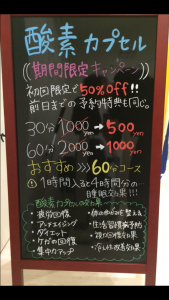 酸素カプセル
期間限定キャンペーン
初回限定で50%off!!
前日までの予約特典も同じ。
30分 1000yen → 500yen
60分 2000yen → 1000yen
おすすめ>>>60分コース
① 1時間入ると4時間分の
睡眠効果!!
酸素カプセルの効果
・疲労回復
・アンチエイジング
・ダイエット
・ケガの回復
・集中力アップ
・体の歪みを整える
・生活習慣病予防
・活性改善効果